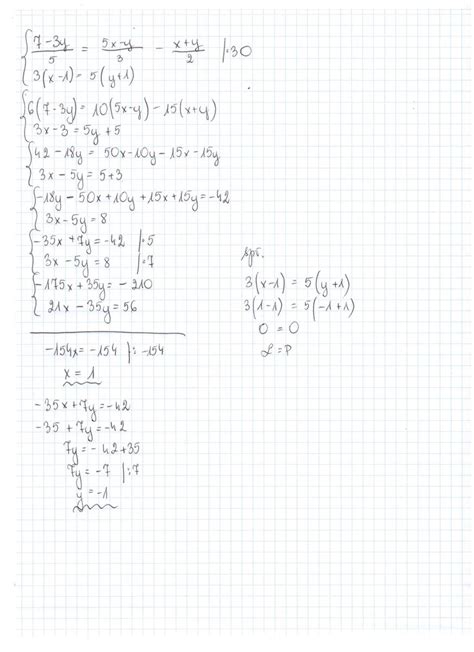 { (7-3y)/5 = (5x-y)/3 - (x+y)/2 |·30
3(x-1) = 5(y+1)
{ 6(7-3y) = 10(5x-y) - 15(x+y)
3x-3 = 5y+5
{ 42-18y = 50x-10y-15x-15y
3x-5y = 5+3
{ -18y-50x+10y+15x+15y = -42
3x-5y = 8
{ -35x+7y = -42 |·5
3x-5y = 8 |·7
{ -175x+35y = -210
21x-35y = 56
-154x = -154 |:-154
x = 1
-35x+7y = -42
-35+7y = -42
7y = -42+35
7y = -7 |:7
y = -1
spr.
3(x-1) = 5(y+1)
3(1-1) = 5(-1+1)
0 = 0
L = P